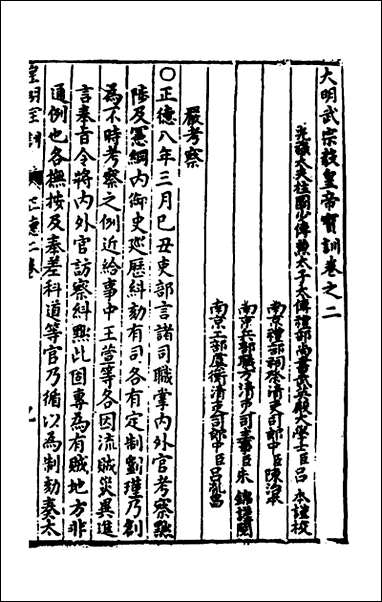 大明武宗毅皇帝寶訓卷之二
光祿大夫柱國少傅兼太子太傅禮部尚書武英殿大學士臣呂本謹校
南京禮部祠祭清吏司郎中臣陳治本
南京兵部職方清吏司主事臣朱錦謹閱
南京工部虞衡清吏司郎中臣呂胤昌
嚴考察
〇正德八年三月己丑吏部言諸司職掌內外官考察黜
陟及憲綱內御史巡歷糾劾有司各有定制劉瑾乃創
為不時考察之例近給事中王萱等各因流賊災異進
言奉旨令將內外官訪察糾黜此固專為有賊地方非
通例也各撫按及奉差科道等官乃循以為制劾奏太
皇明寶訓
正德二卷